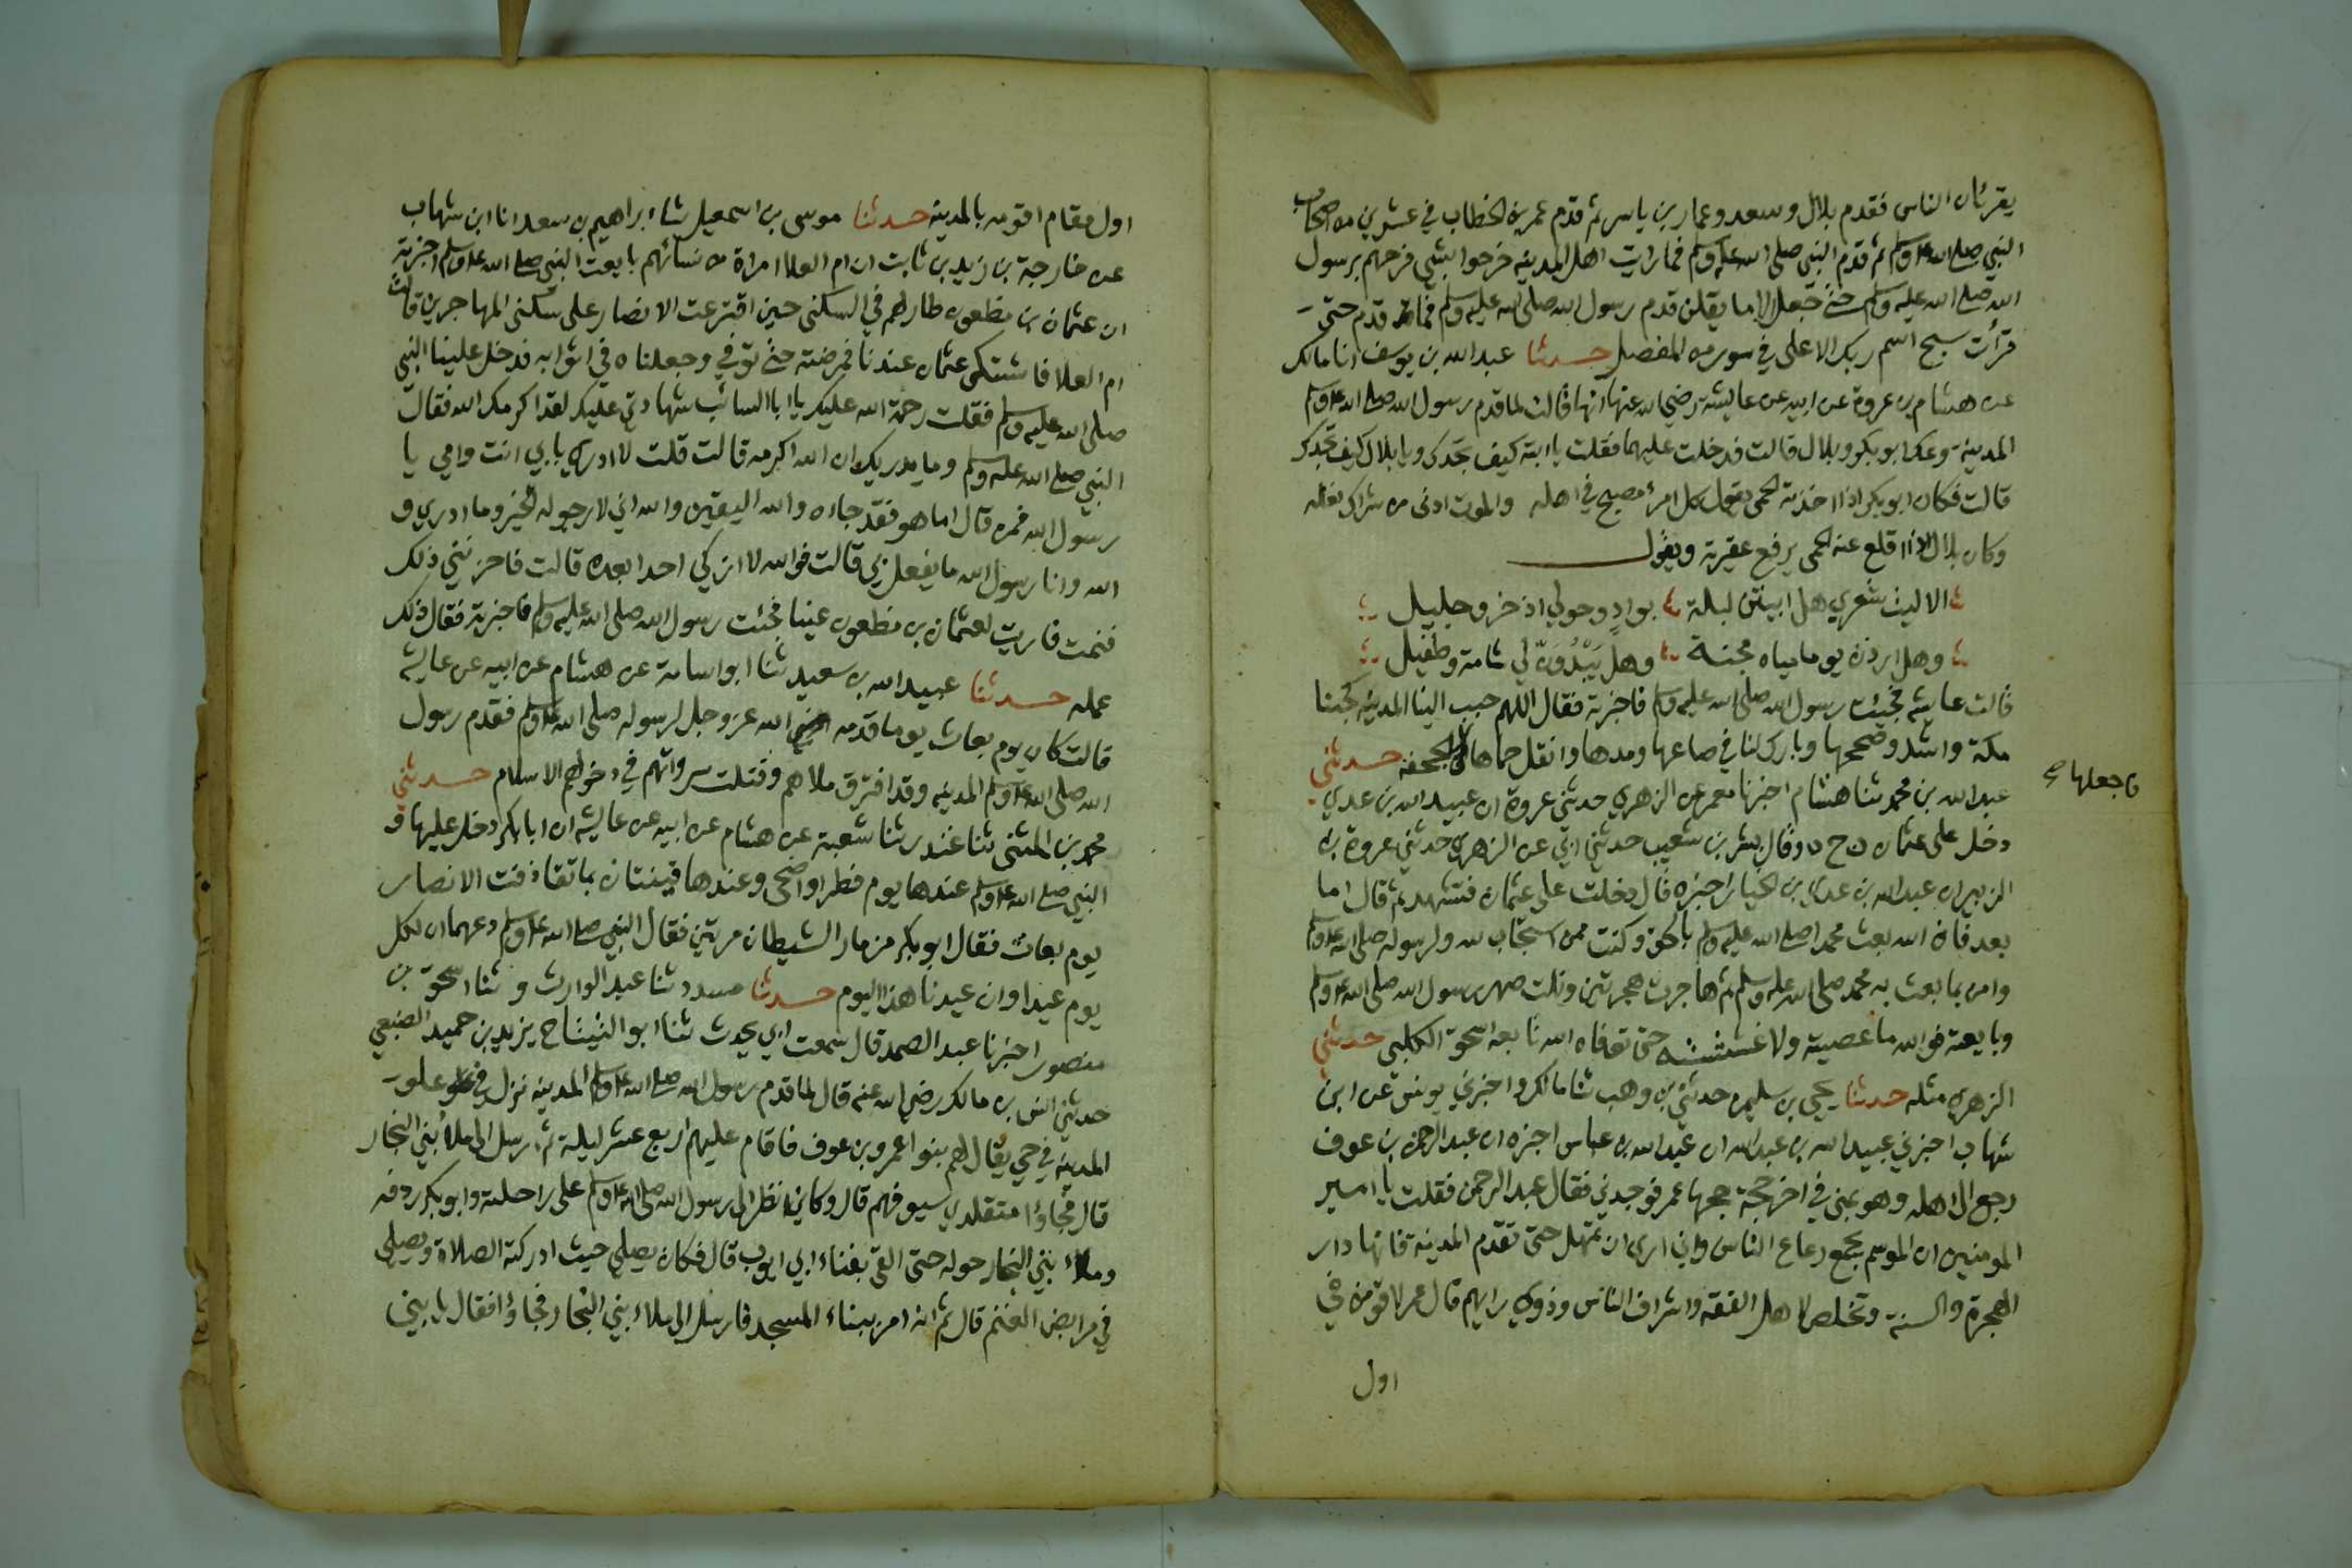 يقرئان الناس فقدم بلال وسعد وعمار بن ياسر ثم قدم عمر بن الخطاب في عشرين من اصحاب
النبي صلى الله عليه وسلم ثم قدم النبي صلى الله عليه وسلم فما رايت اهل المدينه فرحوا بشي فرحهم برسول
الله صلى الله عليه وسلم حتى جعل الاما يقلن قدم رسول الله صلى الله عليه وسلم فما قدم حتى
قرأت سبح اسم ربك الاعلى في سور من المفصل حدثنا عبد الله بن يوسف انا مالك
عن هشام بن عروة عن ابيه عن عايشة رضي الله عنها انها قالت لما قدم رسول الله صلى الله عليه وسلم
المدينة وعك ابو بكر وبلال قالت فدخلت عليهما فقلت يا ابة كيف تجدك ويا بلال كيف تجدك
قالت فكان ابو بكر اذا اخذته الحمى يقول كل امرئ مصبح في اهله والموت ادنى من شراك نعله
وكان بلال اذا اقلع عنه الحمى يرفع عقيرته ويقول
الا ليت شعري هل ابيتن ليلة بوادٍ وحولي اذخر وجليل
وهل اردن يوما مياه مجنة وهل يَبْدُوَنّ لي شامة وطفيل
قالت عايشه فجئت رسول الله صلى الله عليه وسلم فاخبرته فقال اللهم حبب الينا المدينه كحبنا
مكة واشد وصححها وبارك لنا في صاعها ومدها وانقل حماها بالجحفه حدثني
فاجعلها صح
عبد الله بن محمد ثنا هشام اخبرنا معمر عن الزهري حدثني عروة ان عبيد الله بن عدي
دخل على عثمان ح وقال بشر بن شعيب حدثني ابي عن الزهري حدثني عروة بن
الزبير ان عبد الله بن عدي بن الخيار اخبره قال دخلت على عثمان فتشهد ثم قال اما
بعد فان الله بعث محمدا صلى الله عليه وسلم بالحق وكنت ممن استجاب لله ولرسوله صلى الله عليه وسلم
وامن بما بعث به محمد صلى الله عليه وسلم ثم هاجرت هجرتين ونلت صهر رسول الله صلى الله عليه وسلم
وبايعته فوالله ما عصيته ولا غششته حتى توفاه الله تابعه اسحق الكلبي حدثني
الزهري مثله حدثنا يحيى بن سليمن حدثني بن وهب ثنا مالك واخبرني يونس عن ابن
شهاب اخبرني عبيد الله بن عبد الله ان عبد الله بن عباس اخبره ان عبد الرحمن بن عوف
رجع الى اهله وهو بمنى في اخر حجة حجها عمر فوجدني فقال عبد الرحمن فقلت يا امير
المومنين ان الموسم يجمع رعاع الناس واني ارى ان تمهل حتى تقدم المدينة فانها دار
الهجرة والسنة وتخلص لاهل الفقه واشراف الناس وذوي رايهم قال عمر لاقومن في
اول
اول مقام اقومه بالمدينه حدثنا موسى بن اسمعيل ثنا ابراهيم بن سعد انا ابن شهاب
عن خارجة بن زيد بن ثابت ان ام العلا امراة من نسائهم بايعت النبي صلى الله عليه وسلم اخبرته
ان عثمان بن مظعون طار لهم في السكنى حين اقترعت الانصار على سكنى المهاجرين قالت
ام العلا فاشتكى عثمان عندنا فمرضته حتى توفي وجعلناه في اثوابه فدخل علينا النبي
صلى الله عليه وسلم فقلت رحمة الله عليك يا ابا السائب شهادتي عليك لقد اكرمك الله فقال
النبي صلى الله عليه وسلم وما يدريك ان الله اكرمه قالت قلت لا ادري بابي انت وامي يا
رسول الله فمن قال اما هو فقد جاءه والله اليقين والله اني لارجو له الخير وما ادري و
الله وانا رسول الله ما يفعل بي قالت فوالله لا ازكي احدا بعده قالت فاحزنني ذلك
فنمت فاريت لعثمان بن مظعون عينا فجئت رسول الله صلى الله عليه وسلم فاخبرته فقال ذلك
عمله حدثنا عبيد الله بن سعيد ثنا ابو اسامة عن هشام عن ابيه عن عايشه
قالت كان يوم بعاث يوما قدمه الله عز وجل لرسوله صلى الله عليه وسلم فقدم رسول
الله صلى الله عليه وسلم المدينه وقد افترق ملاهم وقتلت سرواتهم في دخولهم الاسلام حدثني
محمد بن المثنى ثنا غندر ثنا شعبة عن هشام عن ابيه عن عايشه ان ابا بكر دخل عليها و
النبي صلى الله عليه وسلم عندها يوم فطر او اضحى وعندها قينتان بما تقاذفت الانصار
يوم بعاث فقال ابو بكر مزمار الشيطان مرتين فقال النبي صلى الله عليه وسلم دعهما ان لكل
يوم عيدا وان عيدنا هذا اليوم حدثنا مسدد ثنا عبد الوارث و ثنا اسحق بن
منصور اخبرنا عبد الصمد قال سمعت ابي يحدث ثنا ابو التياح يزيد بن حميد الضبعي
حدثني انس بن مالك رضي الله عنه قال لما قدم رسول الله صلى الله عليه وسلم المدينه نزل في علو
المدينه في حي يقال لهم بنوا عمرو بن عوف فاقام عليهم اربع عشر ليلة ثم ارسل الى ملاء بني النجار
قال فجاؤا متقلدي سيوفهم قال وكاني انظر الى رسول الله صلى الله عليه وسلم على راحلته وابو بكر ردفه
وملاء بني النجار حوله حتى القى بفناء ابي ايوب قال فكان يصلي حيث ادركته الصلاة ويصلي
في مرابض الغنم قال ثم انه امر ببناء المسجد فارسل الى ملاء بني النجار فجاؤا فقال يا بني